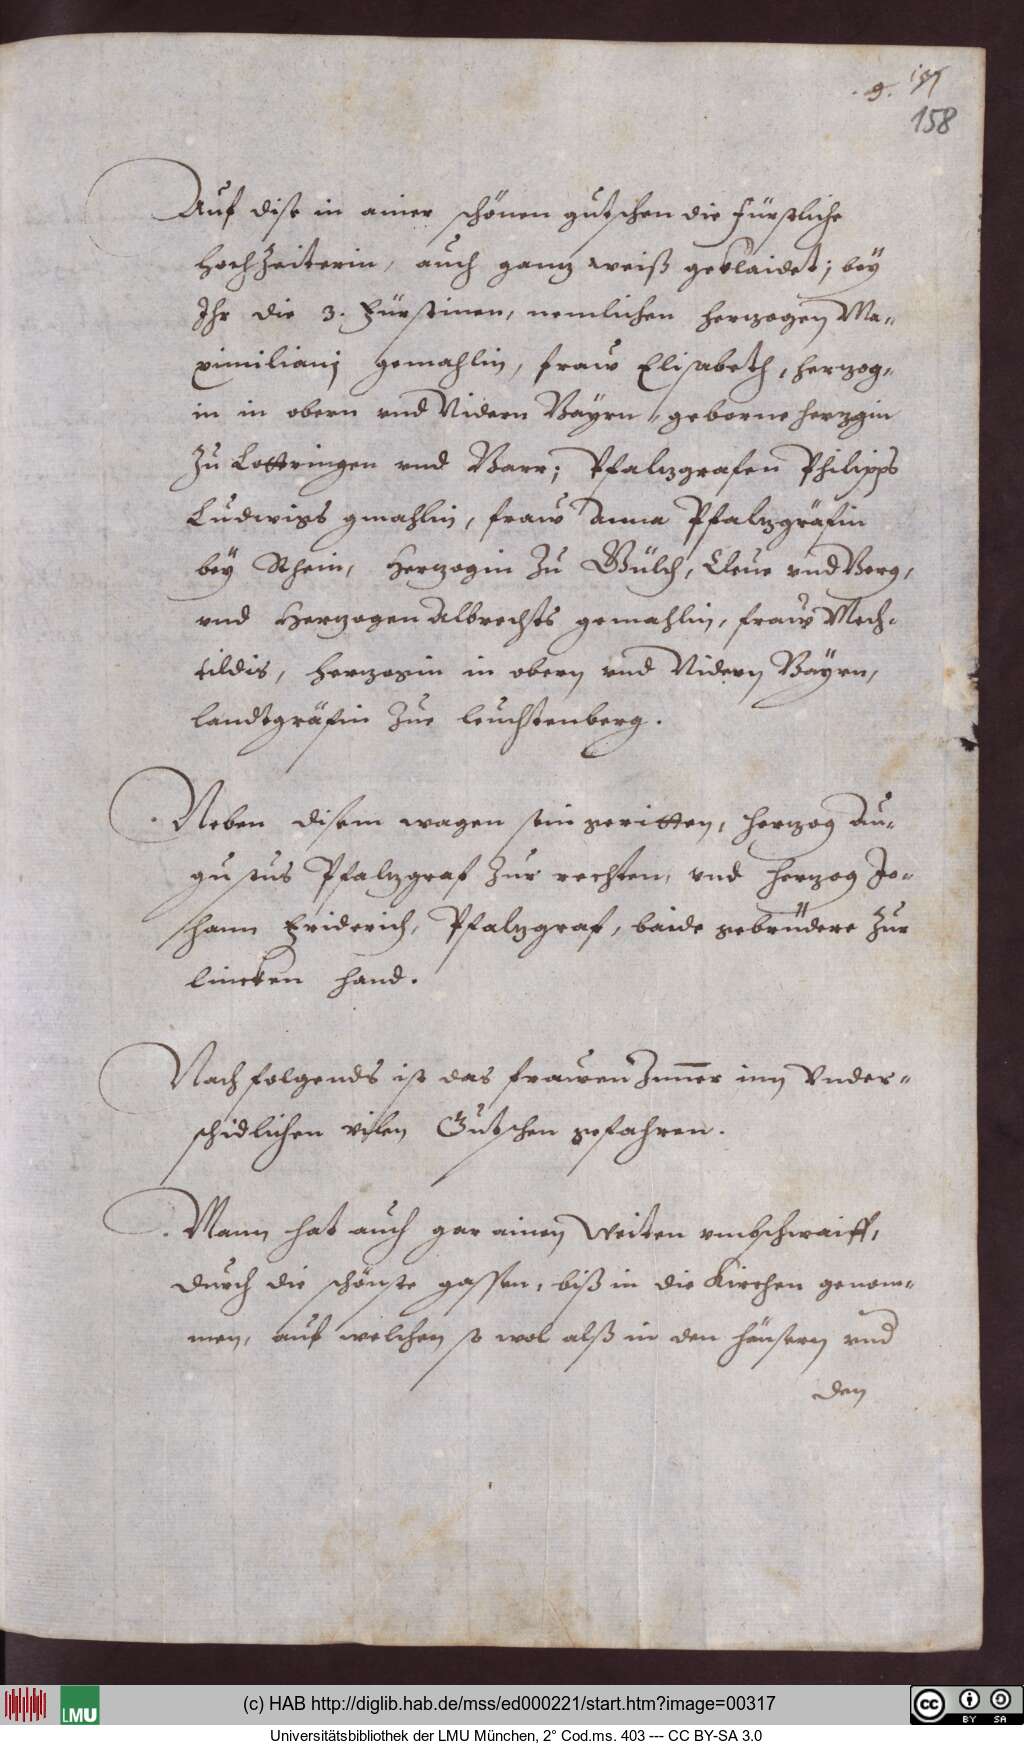 9. 157
158
Auf dise in ainer schönen gutschen die Fürstliche
Hochzeiterin, auch ganz weiß geklaidet; bey
Ihr die 3. Fürstinen, nemlichen herzogen Ma-
ximiliani gemahlin, fraw Elisabeth, herzog-
in in obern vnd Nidern Bayrn, geborne herzgin
Zu Lottringen vnd Barr; Pfalzgrafen Philipps
Ludwigs gmahlin, fraw Anna Pfalzgräfin
bey Rhein, Herzogin Zu Gülch, Cleue vnd Berg,
vnd Herzogen Albrechts gemahlin, fraw Mech-
tildis, herzogin in obern vnd Nidern Bayrn,
landtgräfin Zue leuchtenberg.
Neben disem wagen sein geritten, herzog Au-
gustus Pfalzgraf Zur rechten, vnd herzog Jo-
hann Friderich, Pfalzgraf, baide gebrüdere Zur
lincken hand.
Nachfolgends ist das frawenZimmer inn Vnder-
schidlichen vilen Gutschen gefahren.
Mann hat auch gar ainen Weiten vmbschwaiff,
durch die schönste gassen, biß in die Kirchen genom-
men, auf welchen so wol alß in den heüsern vnd
den
(c) HAB http://diglib.hab.de/mss/ed000221/start.htm?image=00317
LMU
cc BY SA
Universitätsbibliothek der LMU München, 2° Cod.ms. 403 --- CC BY-SA 3.0